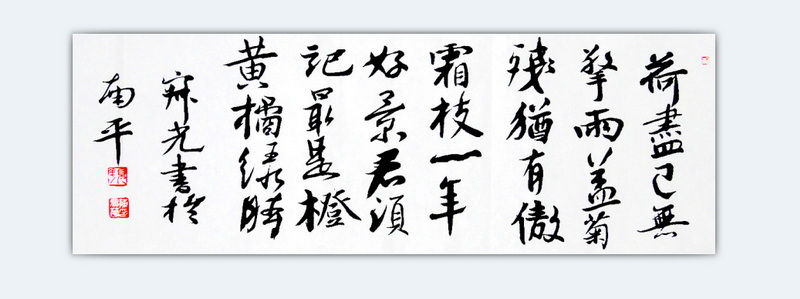 荷盡已無
擎雨蓋菊
殘猶有傲
霜枝一年
好景君須
記最是橙
黃橘綠時
光書於
南平